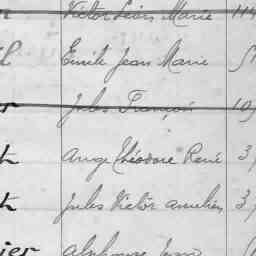 Victor Louis Marie 114
Emile Jean Marie
Jules François 10
Ange Théodore René 3
Jules Victor Aurélien 3
ier Alphonse Jean